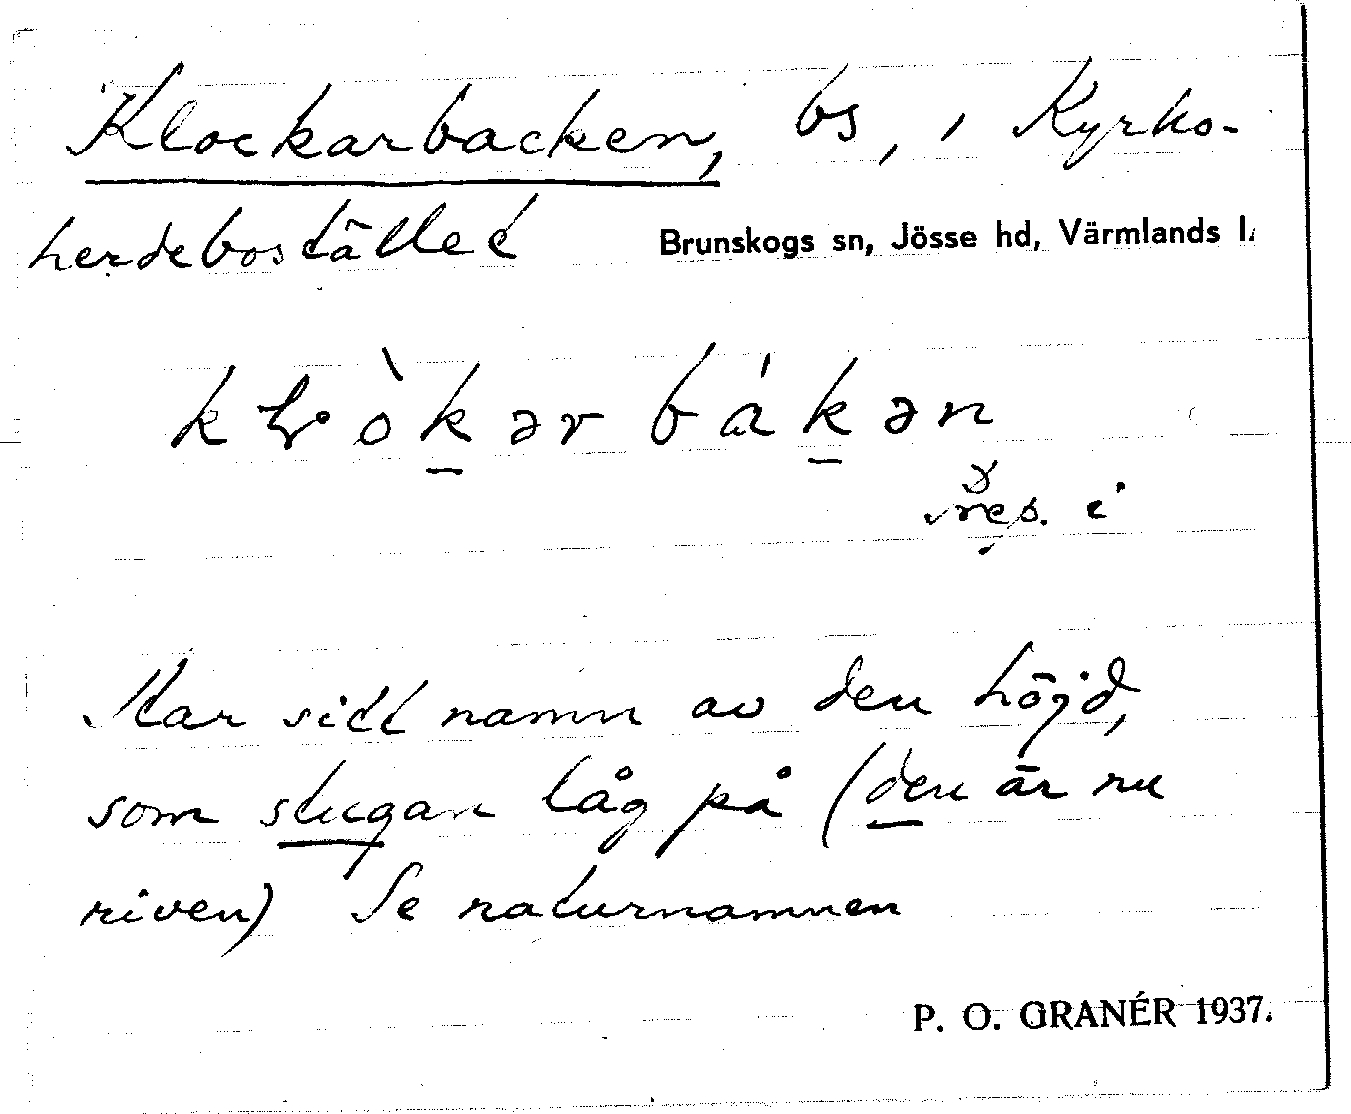 Klockarbacken, bs, i Kyrko-
herdebostället Brunskogs sn, Jösse hd, Värmlands l.
resp. i
Har sitt namn av den höjd,
som stugan låg på (den är nu
riven) Se naturnamnen
P. O. GRANÉR 1937.